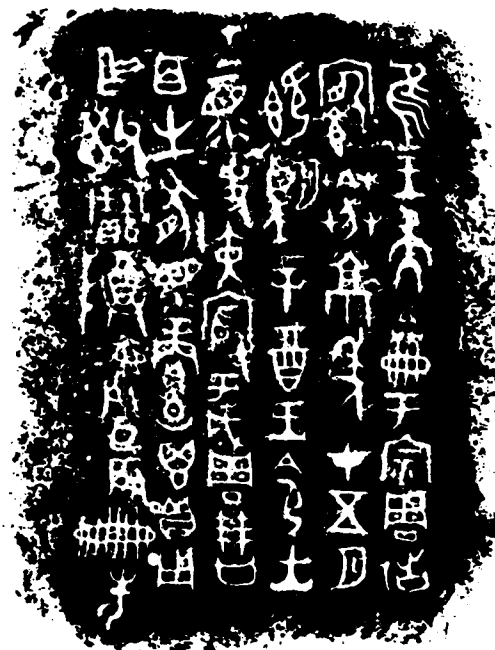 隹王大龠于宗周
館葊京年才五月
既望辛酉王令士
上眔史寅殷于成周
百生豚眔賞卣鬯貝
用乍父癸寶尊彝臣辰冊